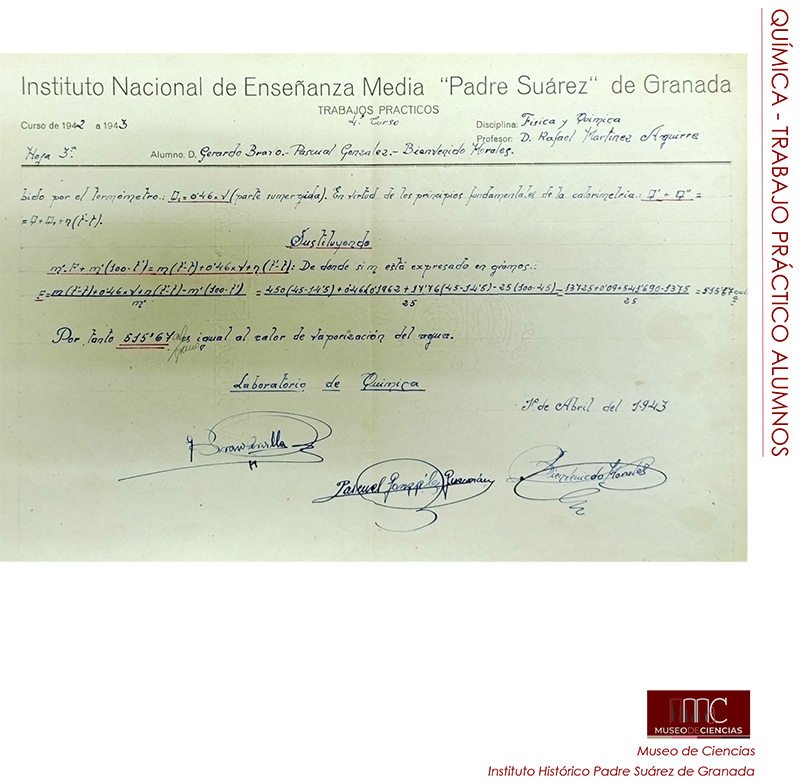 QUÍMICA - TRABAJO PRÁCTICO ALUMNOS
Instituto Nacional de Enseñanza Media "Padre Suárez" de Granada
TRABAJOS PRACTICOS
4º Curso
Curso de 1942 a 1943
Disciplina: Física y Química
Profesor: D. Rafael Martinez Aguirre
Hoja 3ª
Alumno. D. Gerardo Bravo.- Pascual Gonzalez.- Bienvenido Morales.
bido por el termómetro.: Q₁=0'46×v (parte sumergida). En virtud de los principios fundamentales de la calorimetria.: Q'+Q''=
=Q+Q₁+η(t'-t).
Sustituyendo
m'.r+m'(100-t')=m(t'-t)+0'46×v+η(t'-t): De donde si m está expresado en gramos.:
r=m(t'-t)+0'46×v+η(t'-t)-m'(100-t')/m' =450(45-14'5)+0'46(0'1962+17'76(45-14'5)-25(100-45)/25 =13725+0'09+541'690-1375/25 =515'67
Por tanto 515'67 es igual al calor de vaporización del agua.
Laboratorio de Química
1º de Abril del 1.943
Pascual González
Bienvenido Morales
MC
MUSEODECIENCIAS
Museo de Ciencias
Instituto Histórico Padre Suárez de Granada